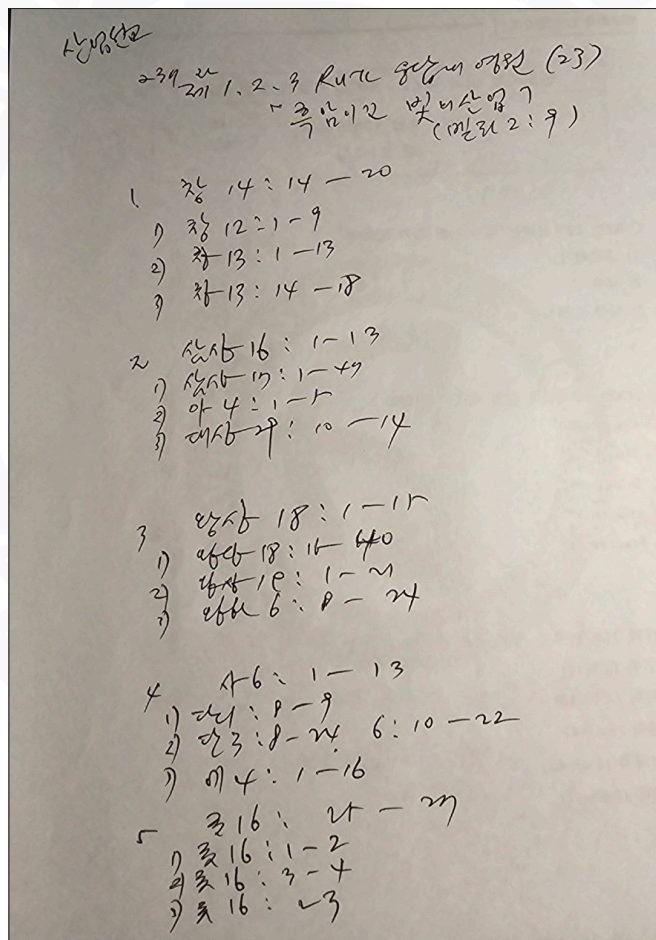 산업선교
237과 제1, 2, 3 RUTC 응답의 여정 (23)
흑암이긴 빛의산업7
(벧전2:9)
1 창 14:14-20
1) 창 12:1-9
2) 창 13:1-13
3) 창 13:14-18
2 삼상 16:1-13
1) 삼상 17:1-47
2) 아 4:1-5
3) 대상 29:10-14
3 왕상 18:1-15
1) 왕상 18:16-40
2) 왕상 19:1-21
3) 왕하 6:8-24
4 사6:1-13
1) 단1:8-9
2) 단3:8-24 6:10-22
3) 에4:1-16
5 롬16:25-27
1) 롬16:1-2
2) 롬16:3-4
3) 롬16:23